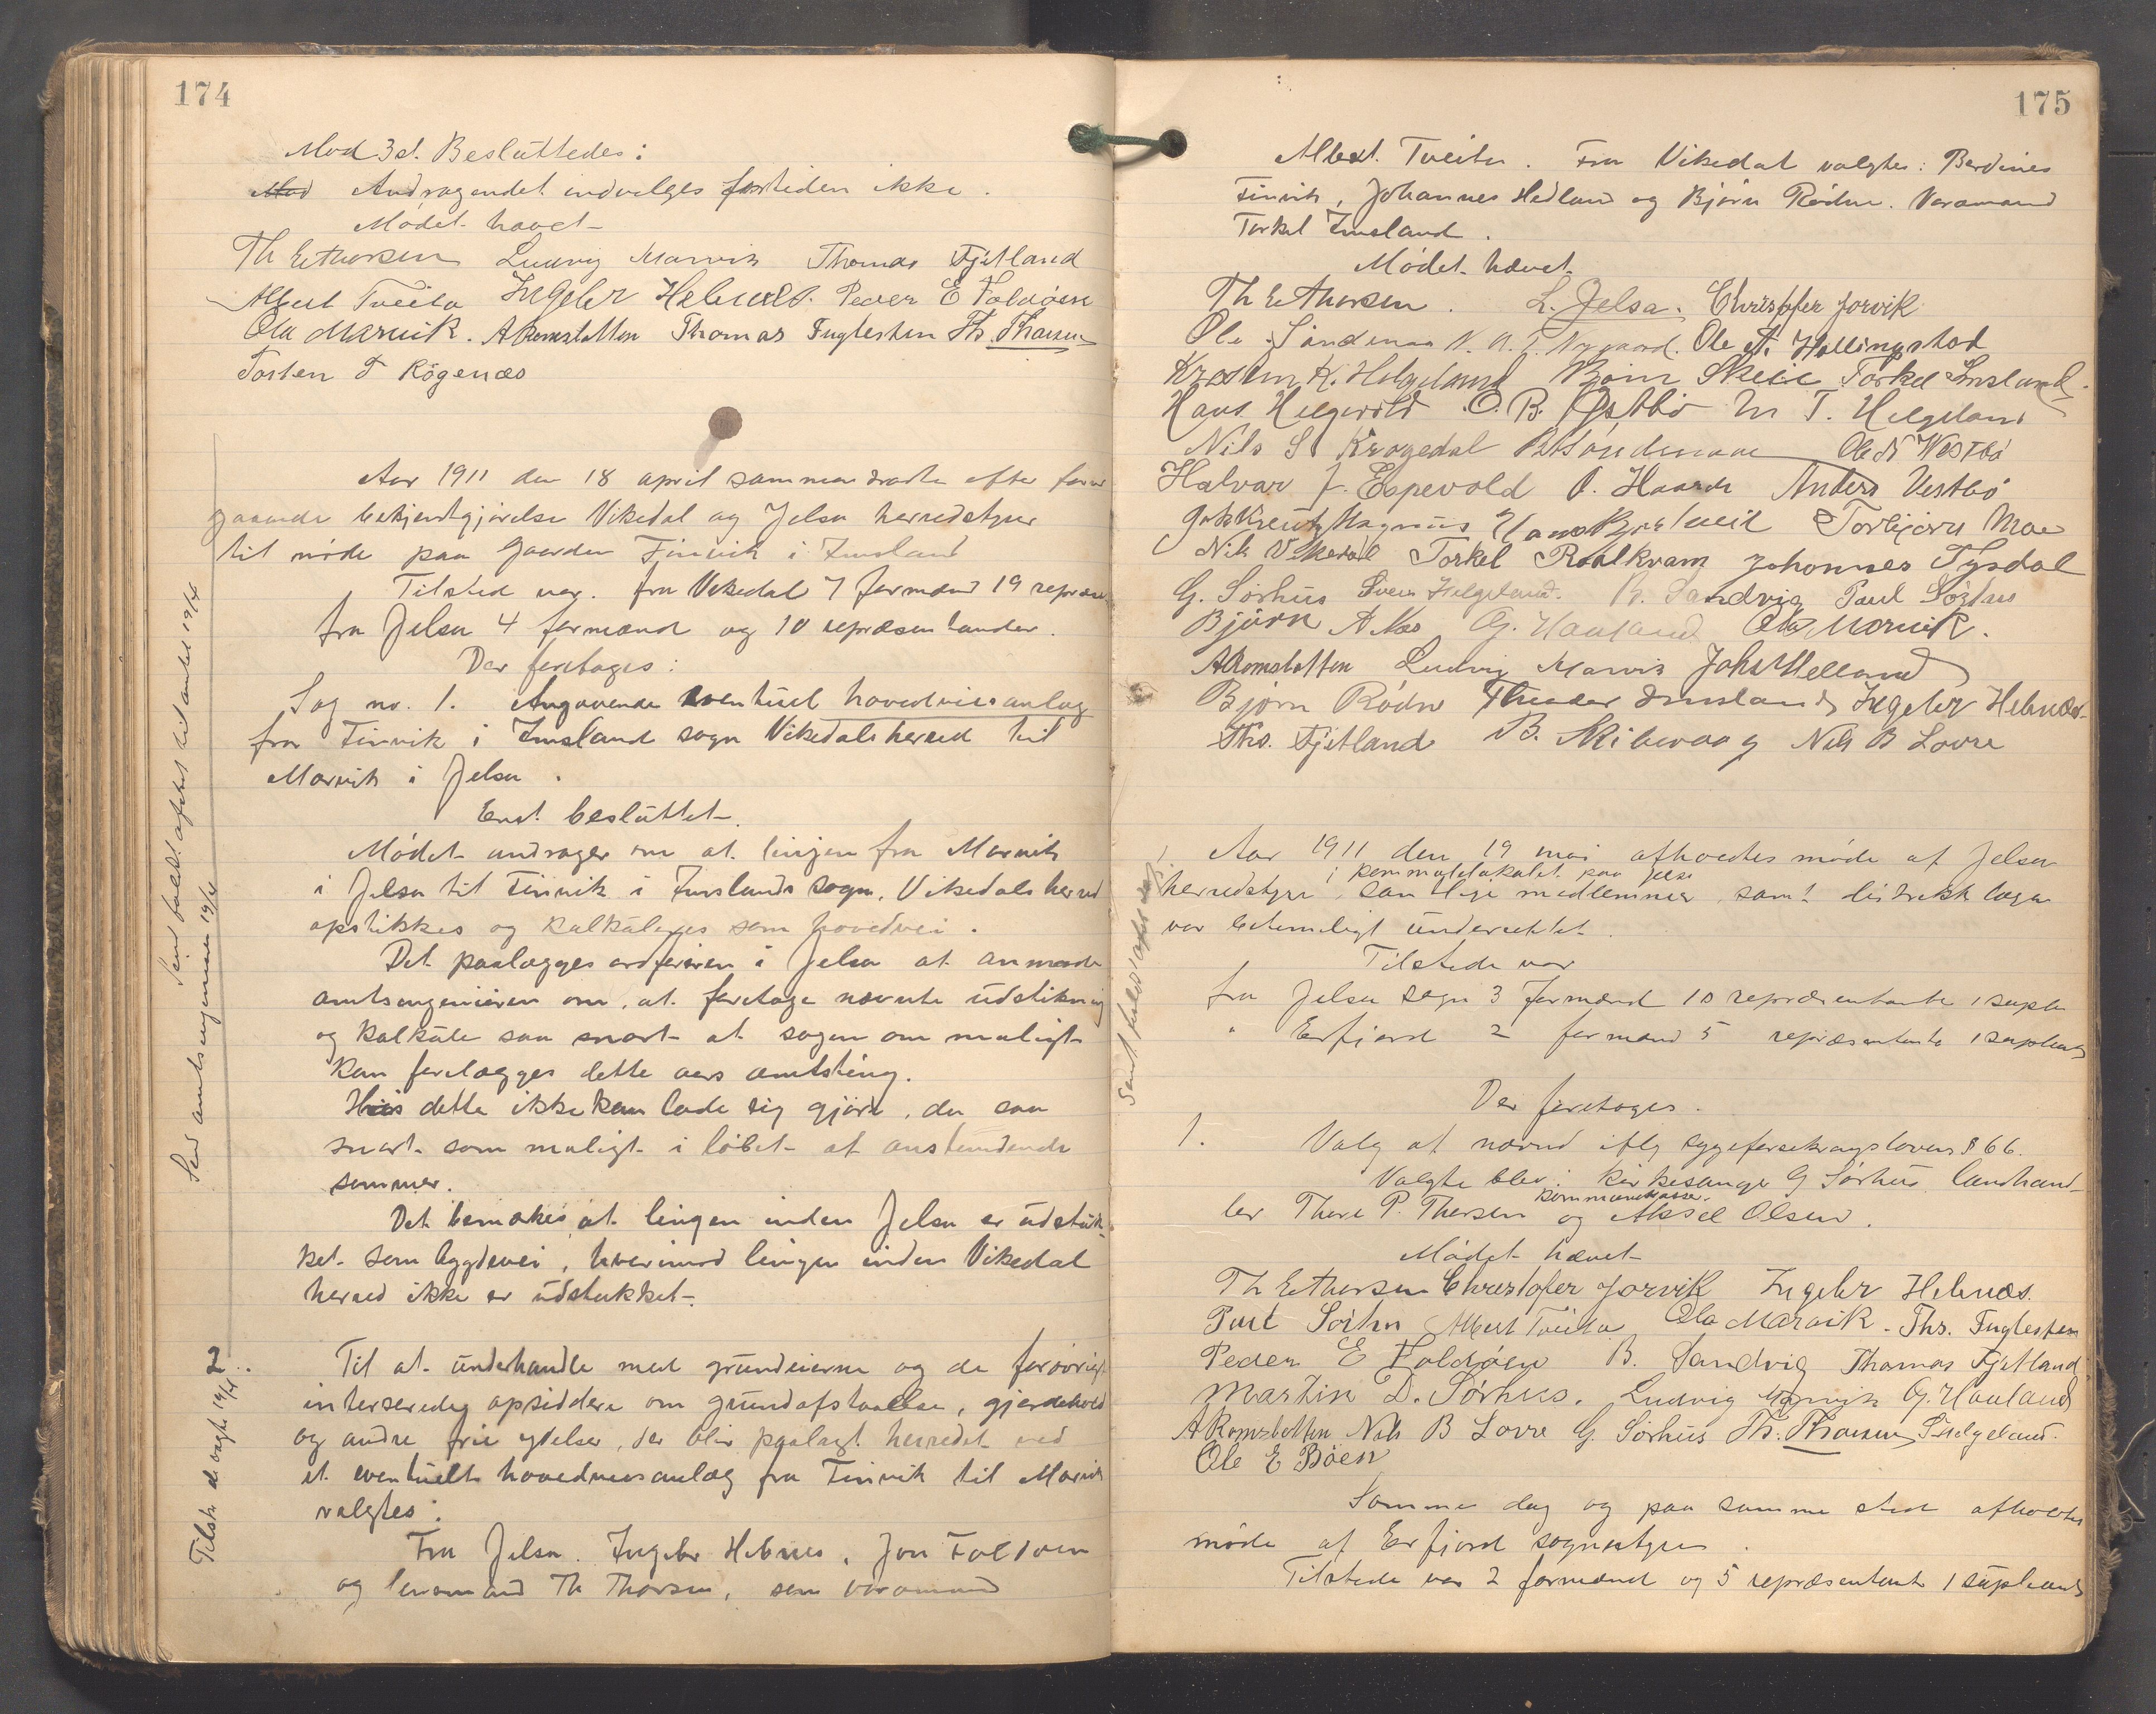 174
Mod 3 st. Besluttedes:
Mod Andragendet indvilges fortiden ikke.
Mødet hævet
Th E Thorsen Ludvig Marvik Thomas Fjetland
Albert Tveita Ingebr Hebnes. Peder E Foldøen
Ola Marvik. A Romslatten Thomas Fuglesten Th. Thorsen
Torsten T Røgenæs
Aar 1911 den 18 april sammentraadte efter forud
gaaende bekjendtgjørelse Vikedal og Jelsa herredstyrer
til møde paa gaarden Finvik i Imsland
Tilsted var. fra Vikedal 7 formænd 19 repræs
fra Jelsa 4 formænd og 10 repræsentanter.
Der foretoges:
Sag no. 1. Angaaende eventuel hovedveisanlæg
fra Finvik i Imsland sogn Vikedals herred til
Marvik i Jelsa.
Enst. besluttet.
Mødet andrager om at linjen fra Marvik
i Jelsa til Finvik i Imslands sogn, Vikedals herred
opstikkes og kalkuleres som hovedvei.
Det paalægges ordføreren i Jelsa at anmode
amtsingeniøren om, at foretage nævnte udstikning
og kalkule saa snart at sagen om muligt
kan forelægges dette aars amtsting.
Hvis dette ikke kan lade sig gjøre, da saa
snart som muligt i løbet af anstundende
sommer.
Det bemærkes, at linjen inden Jelsa er udstuk-
ket som bygdevei, hvorimod linjen inden Vikedal
herred ikke er udstukket.
2. Til at underhandle med grundeierne og de forøvrigt
interserede opsiddere om grundafstaaelse, gjærdehold
og andre frie ydelser, der blir paalagt herredet ved
et eventuelt hovedveisanlæg fra Finvik til Marvik
valgtes:
Fra Jelsa. Ingebr Hebnes, Jon Foldøen
og lensmand Th Thorsen, som varamand
Send amtsingeniøren 19/4
175
Albert Tveita. Fra Vikedal valgtes: Berdines
Finvik, Johannes Hedland og Bjørn Rødne. Varamand
Torkel Imsland.
Mødet hævet.
Th E Thorsen. L. Jelsa. Christoffer Jorvik
Ole Søndenaa N. A. T. Nygaard. Ole A. Hallingstad
Kristen K. Helgeland Bjørn Skeie Torkel Imsland.
Hans Helgevold O. B. Østbø M T. Helgeland
Nils S Krogedal B Søndenaa Ole N Westbø
Halvar J. Espevold O. Haarde Anders Vestbø
Joh Kreutz Magnus Hans Bjørkeveit Torbjørn Moe
Nils Vikedal Torkel Roalkvam Johannes Tysdal
G. Sørhus Svein Helgeland. B. Sandvig Paul Sørhus
Bjørn A Næs G. Hauland Ola Marvik.
A Romslatten Ludvig Marvik Johs Helland
Bjørn Rødne Theodor Imsland Ingebr Hebnes.
Ths. Fjetland B. Skibevaag Nils B Lovre
Aar 1911 den 19 mai afholdtes møde af Jelsa
i kommunelokalet paa Jelsa
herredstyre, samtlige medlemmer samt distriktslægen
var betimeligt underrettet.
Tilstede var
fra Jelsa sogn 3 formænd 10 repræsentanter 1 suplea
" Erfjord 2 formænd 5 repræsentanter 1 supleant
Der foretoges.
1. Valg af nævnd iflg sygeforsikringslovens § 66.
Valgte blev: kirkesanger G Sørhus landhand-
kommunekasser.
ler Thore P. Thorsen og Aksel Olsen.
Mødet hævet
Th E Thorsen Christofer Jorvik Ingebr Hebnes.
Paul Sørhus Albert Tveita Ola Marvik. Ths. Fuglesten
Peder E Foldøen B. Sandvig Thomas Fjetland.
Martin D. Sørhus. Ludvig Marvik G. Hauland
A Romslatten Nils B Lovre G. Sørhus Th. Thorsen S Helgeland.
Ole E Bøen
Samme dag og paa samme sted afholdtes
møde af Erfjord sognestyre.
Tilstede var 2 formænd og 5 repræsentanter 1 supleant